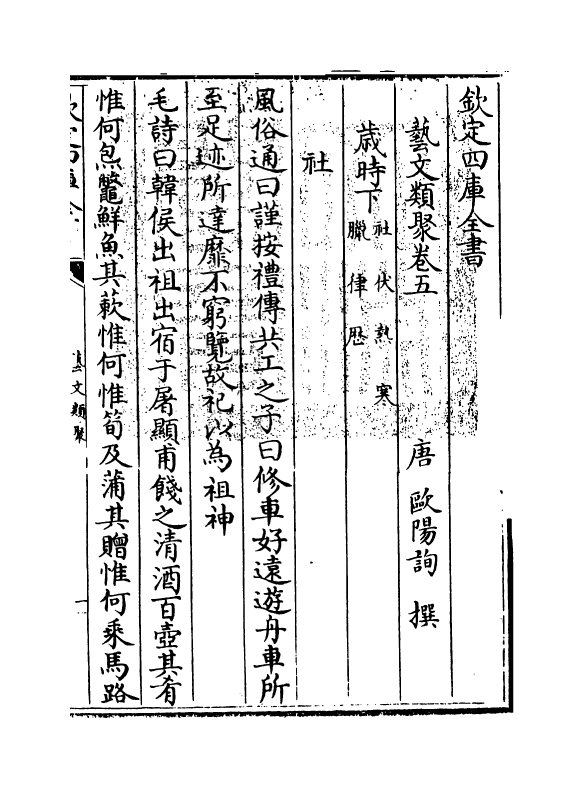 欽定四庫全書
藝文類聚卷五
唐 歐陽詢 撰
歲時下 社 伏 熱 寒
臘 律 厯
社
風俗通曰謹按禮傳共工之子曰修車好遠遊舟車所
至足迹所達靡不窮覽故祀以為祖神
毛詩曰韓侯出祖出宿于屠顯甫餞之清酒百壺其肴
惟何炰鼈鮮魚其蔌惟何惟筍及蒲其贈惟何乘馬路
藝文類聚
一